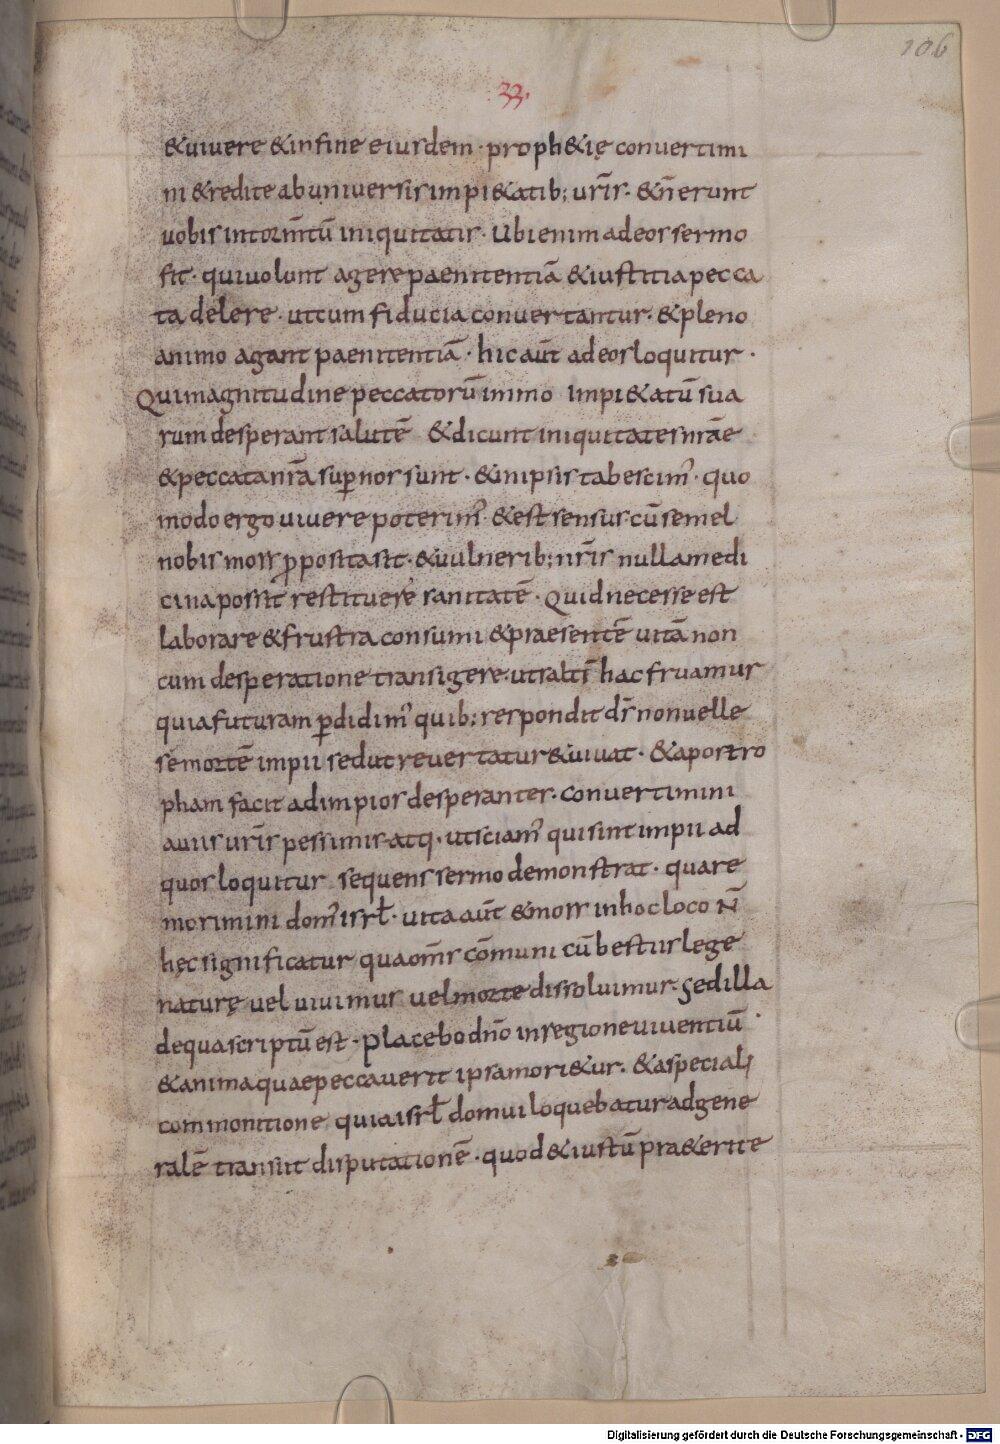 106
33.
&uiuere &infine eiusdem · proph&ię conuertimi
ni &redite abuniuersis impi&atib; ur̄is · &n̄ erunt
uobis intorm̄tū iniquitatis · Ubi enim ad eos sermo
fit · qui uolunt agere paenitentiā &iustitia pecca
ta delere · ut cum fiducia conuertantur · &pleno
animo agant paenitentiā · hic aūt ad eos loquitur ·
Qui magnitudine peccatorū immo impi&atū sua
rum desperant salutē &dicunt iniquitates nr̄ae
&peccata nr̄a sup̄ nos sunt · &in ipsis tabescim̓ · quo
modo ergo uiuere poterim̓ · &est sensus · cū semel
nobis mors p̄posita sit · &uulnerib; nr̄is nulla medi
cina possit restituere sanitatē · Quid necesse est
laborare &frustra consumi &praesentē uitā non
cum desperatione transigere · ut saltī hac fruamur
quia futuram p̄didim̓ quib; respondit dr̄ non uelle
se mortē impii sed ut reuertatur &uiuat · &apostro
pham facit ad impios desperantes · conuertimini
a uiis ur̄is pessimis · atq · ut sciam̓ qui sint impii ad
quos loquitur sequens sermo demonstrat · quare
morimini dom̓ isrł · uita aūt &mors in hoc loco N̄
hęc significatur qua om̄s cōmuni cū bestiis lege
naturę uel uiuimus uel morte dissoluimur · sed illa
de qua scriptū est · placebo dn̄o in regione uiuentiū ·
&anima quae peccauerit ipsa mori&ur · &a speciali
commonitione quia isrł domui loquebatur ad gene
ralē transit disputationē · quod &iustū pra&erite
Digitalisierung gefördert durch die Deutsche Forschungsgemeinschaft · DFG